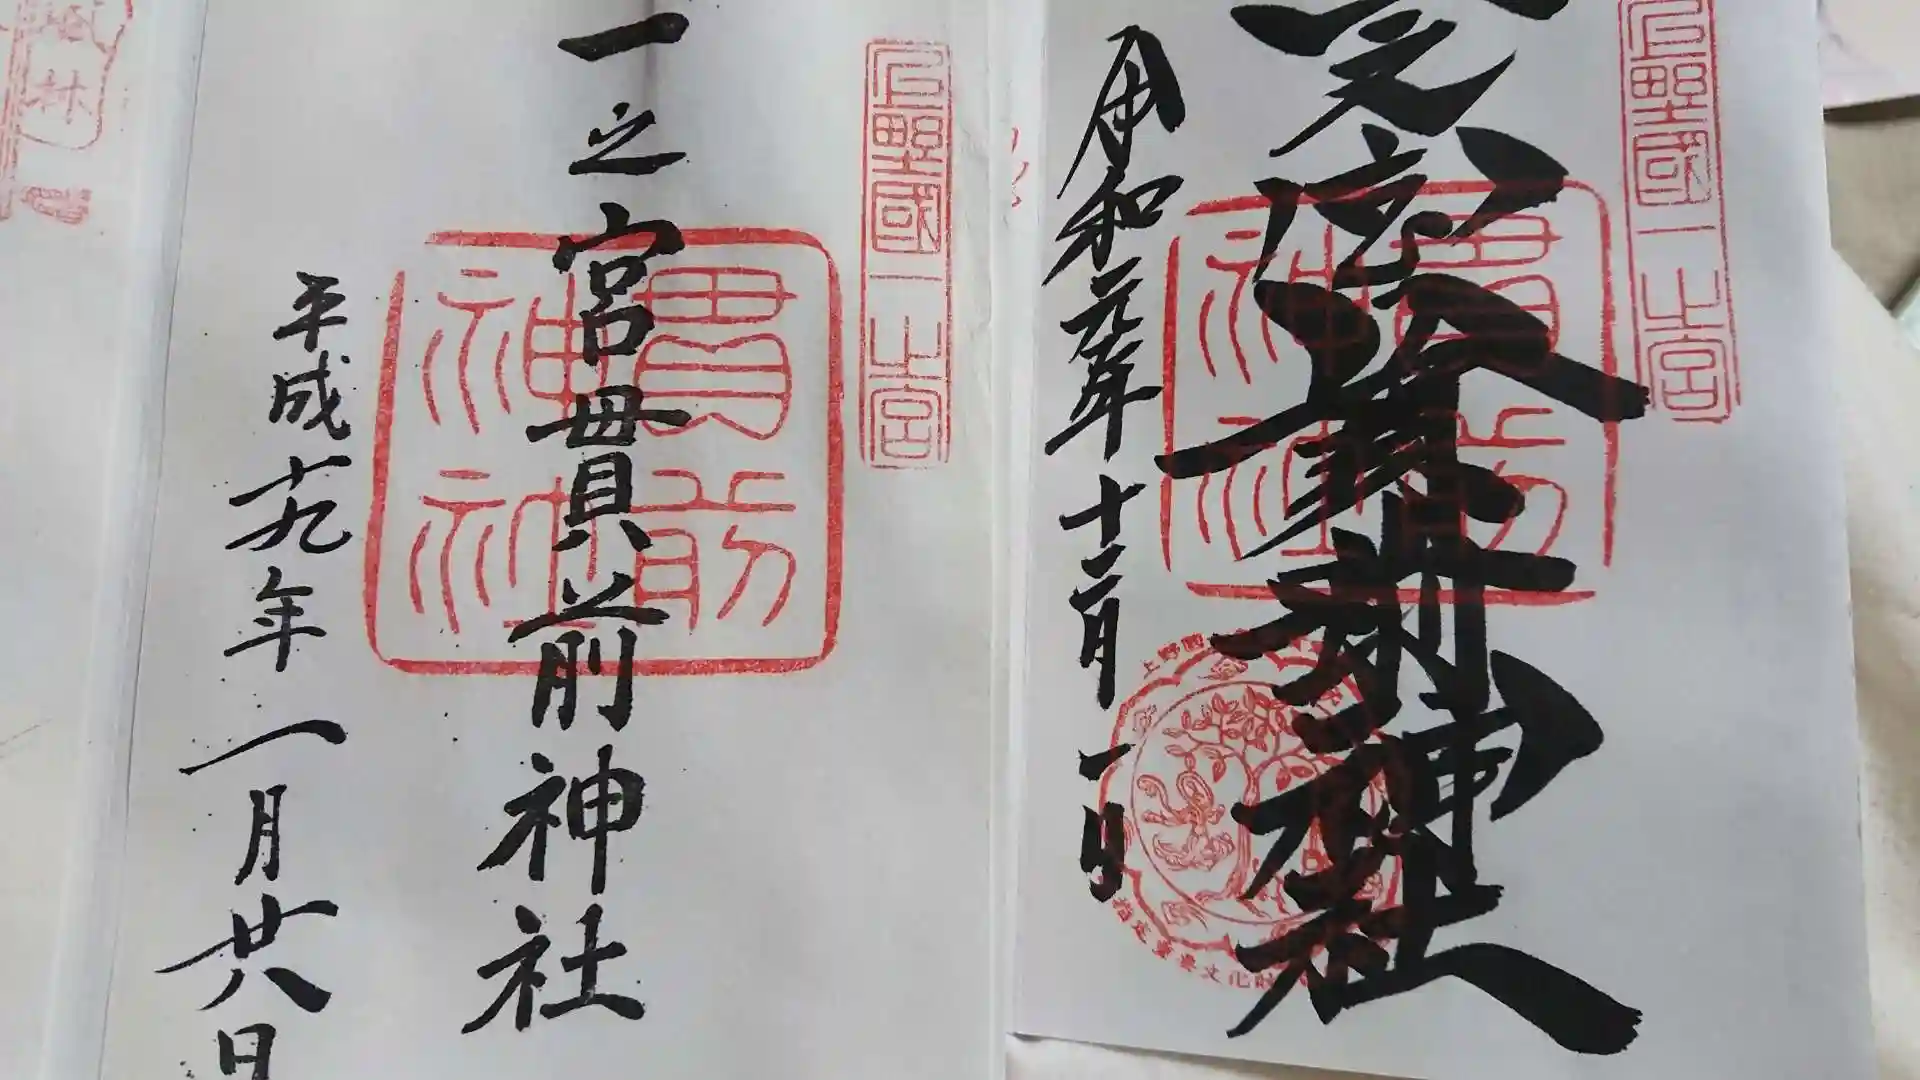 上野國一之宮
令和元年十二月一日
貫前神社
貫前神社
上野國
指定重要文化財
上野國一之宮
一之宮貫前神社
貫前神社
平成十九年一月廿八日
林